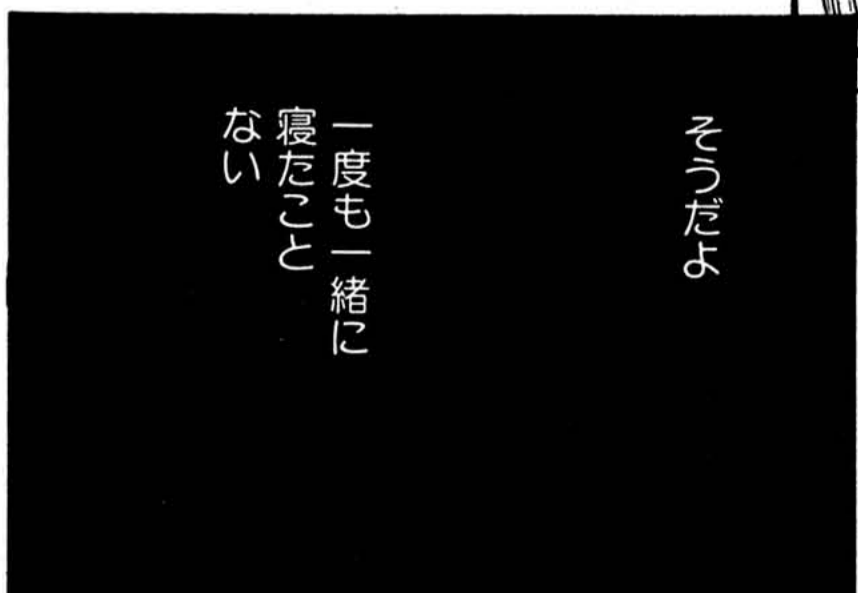 そうだよ
一度も一緒に
寝たこと
ない